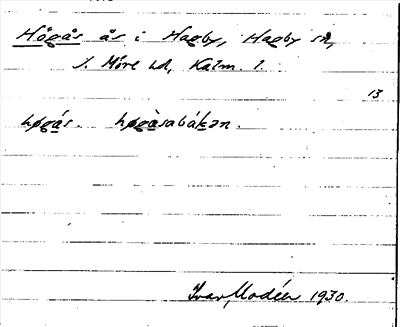 Högås ås i Hagby, Hagby sn,
S. Möre hd, Kalm. l.
13
høgás. høgàsabákən.
Ivar Modéer 1930.